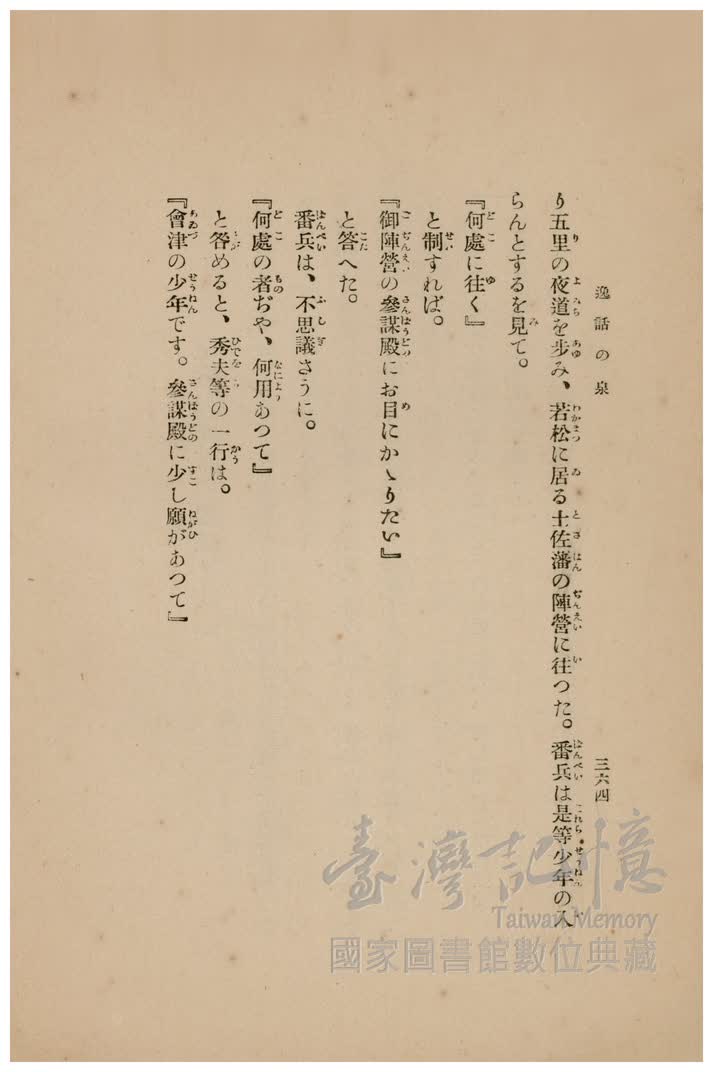 逸話の泉
三六四
り五里の夜道を步み、若松に居る土佐藩の陣營に往つた。番兵は是等少年の入
らんとするを見て。
『何處に往く』
と制すれば。
『御陣營の參謀殿にお目にかゝりたい』
と答へた。
番兵は、不思議さうに。
『何處の者ぢや、何用あつて』
と咎めると、秀夫等の一行は。
『會津の少年です。參謀殿に少し願があつて』
臺灣記憶
Taiwan Memory
國家圖書館數位典藏